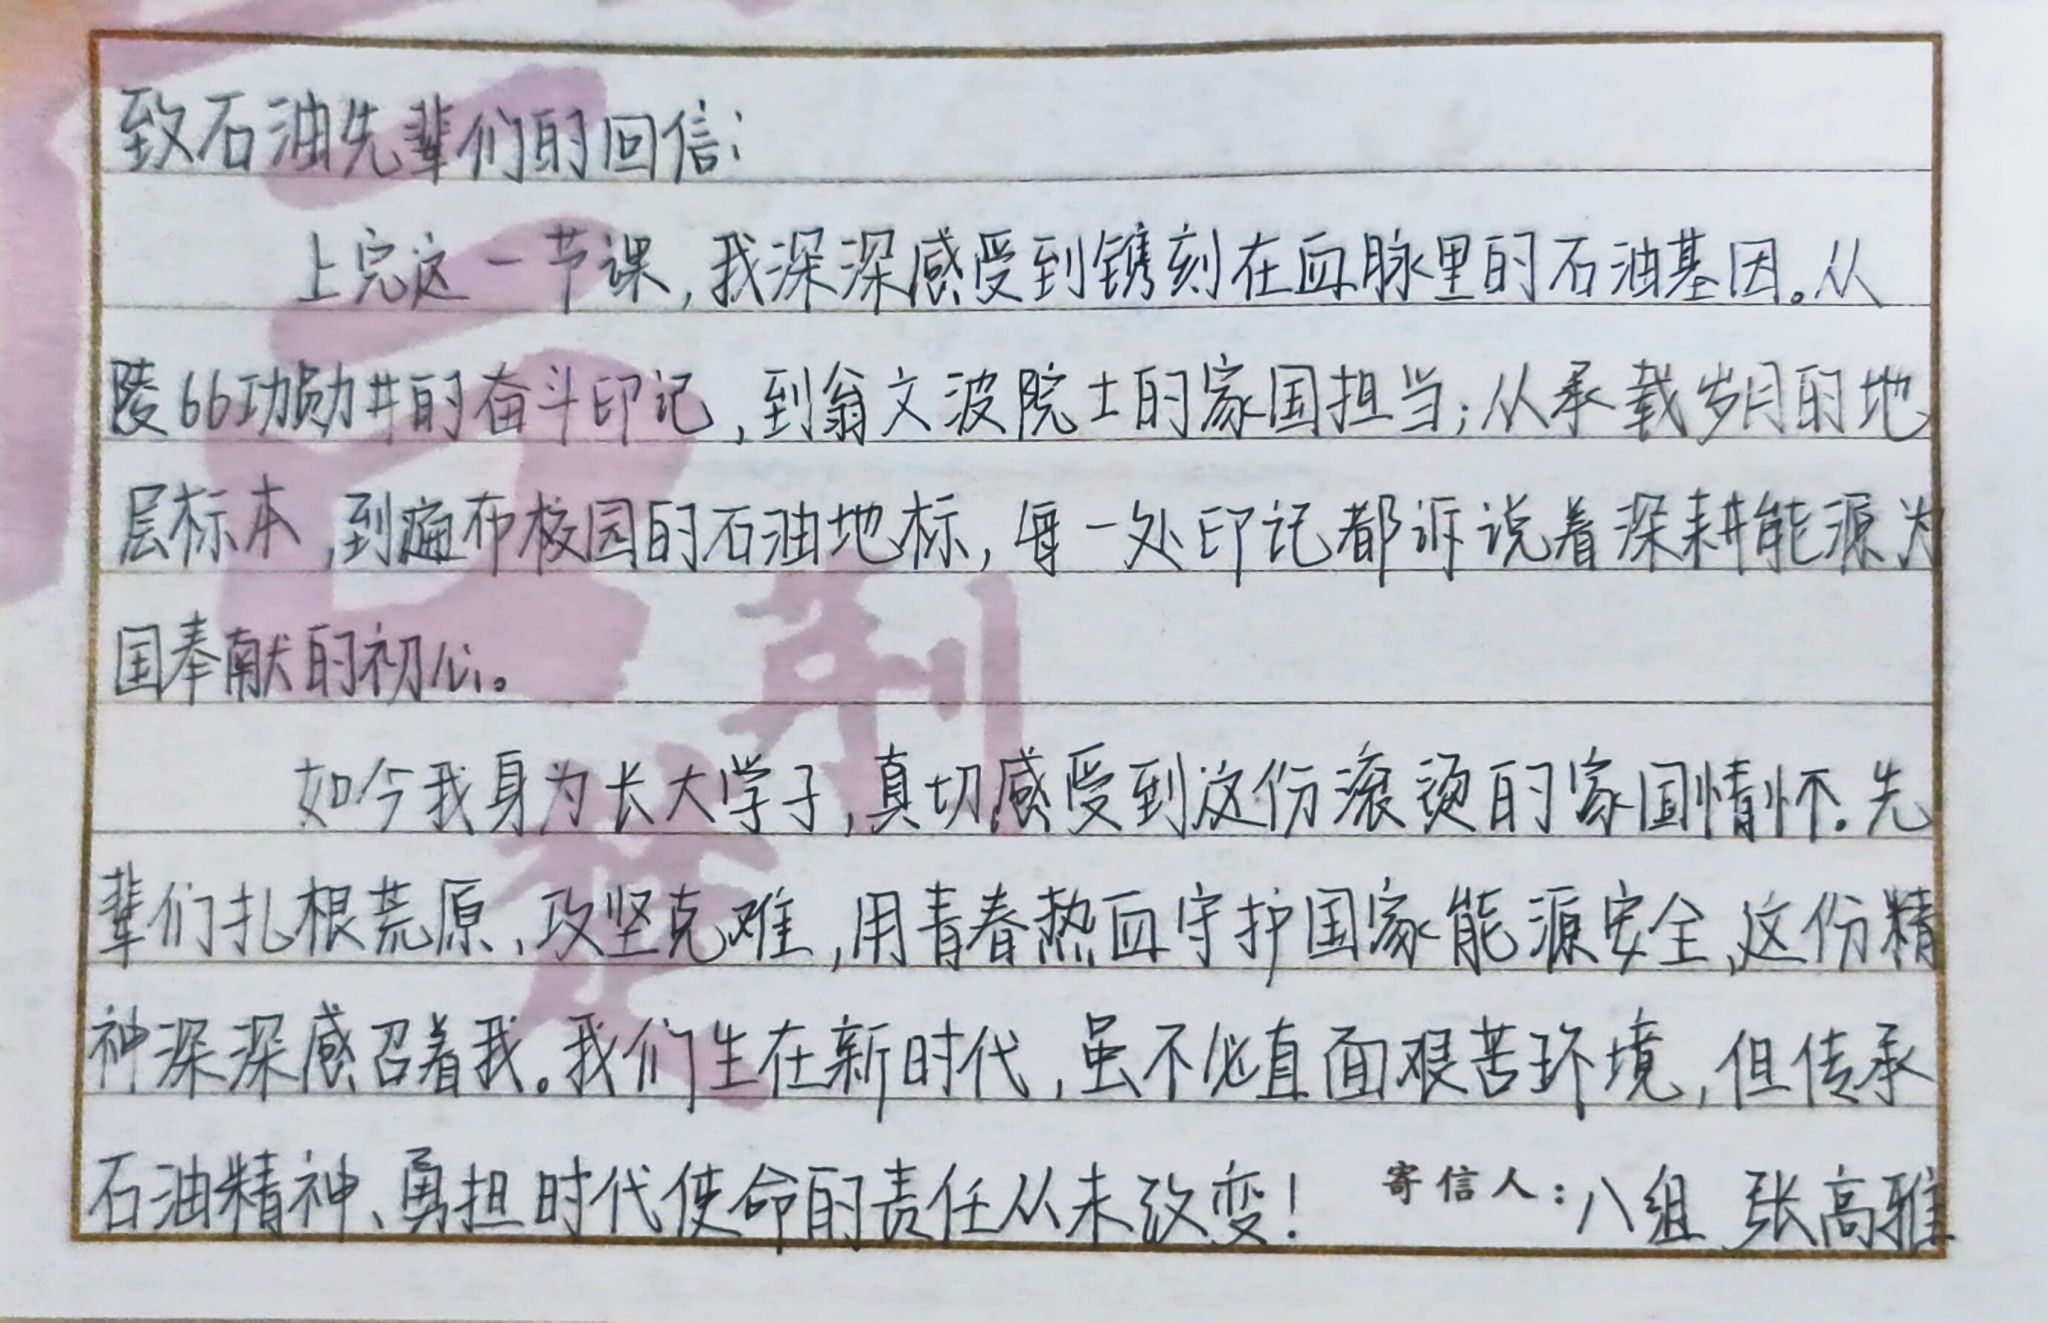 致石油先辈们的回信：
上完这一节课，我深深感受到镌刻在血脉里的石油基因。从
陵66功勋井的奋斗印记，到翁文波院士的家国担当；从承载岁月的地
层标本，到遍布校园的石油地标，每一处印记都诉说着深耕能源为
国奉献的初心。
如今我身为长大学子，真切感受到这份滚烫的家国情怀。先
辈们扎根荒原、攻坚克难，用青春热血守护国家能源安全，这份精
神深深感召着我。我们生在新时代，虽不必直面艰苦环境，但传承
石油精神、勇担时代使命的责任从未改变！ 寄信人：八组 张高雅
荆楚